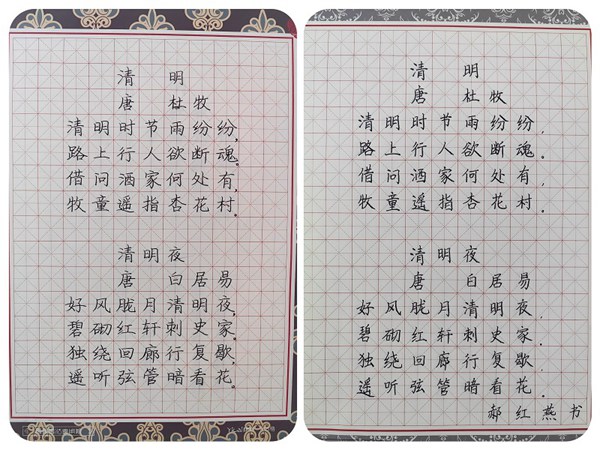 清 明
唐 杜牧
清明时节雨纷纷，
路上行人欲断魂。
借问酒家何处有，
牧童遥指杏花村。
清明夜
唐 白居易
好风胧月清明夜，
碧砌红轩刺史家。
独绕回廊行复歇，
遥听弦管暗看花。
清 明
唐 杜牧
清明时节雨纷纷，
路上行人欲断魂。
借问酒家何处有，
牧童遥指杏花村。
清明夜
唐 白居易
好风胧月清明夜，
碧砌红轩刺史家。
独绕回廊行复歇，
遥听弦管暗看花。
郝红燕书